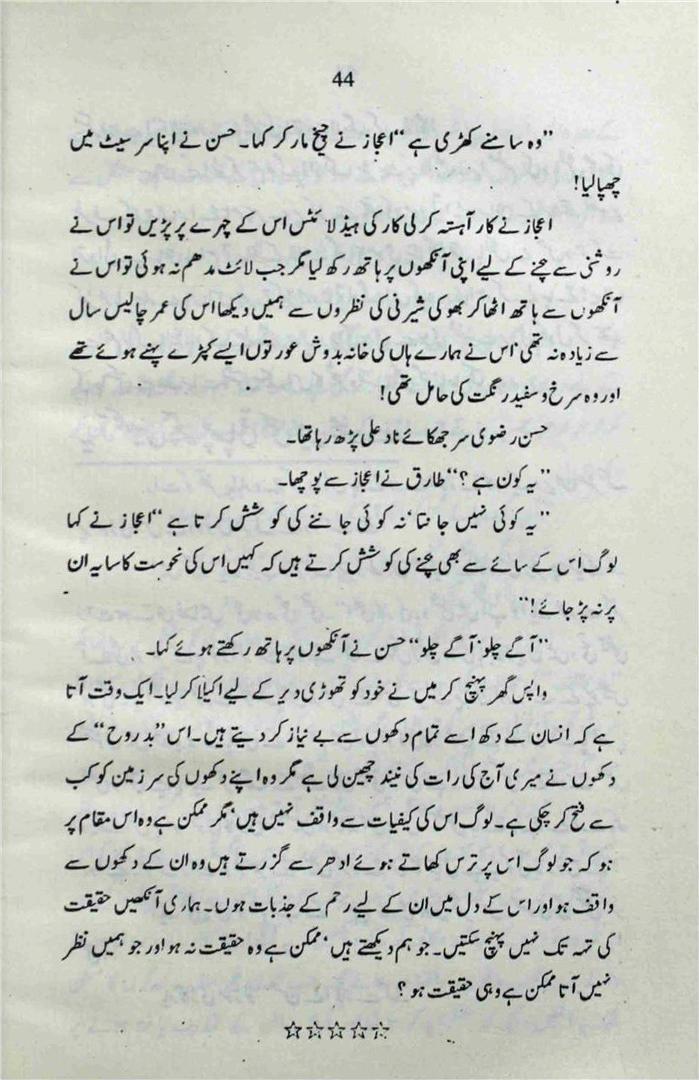 44
"وہ سامنے کھڑی ہے" اعجاز نے چیخ مار کر کہا۔ حسن نے اپنا سر سیٹ میں
چھپا لیا!
اعجاز نے کار آہستہ کر لی کار کی ہیڈ لائٹس اس کے چہرے پر پڑیں تو اس نے
روشنی سے بچنے کے لیے اپنی آنکھوں پر ہاتھ رکھ لیا مگر جب لائٹ مدھم نہ ہوئی تو اس نے
آنکھوں سے ہاتھ اٹھا کر بھوکی شیرنی کی نظروں سے ہمیں دیکھا اس کی عمر چالیس سال
سے زیادہ نہ تھی' اس نے ہمارے ہاں کی خانہ بدوش عورتوں ایسے کپڑے پہنے ہوئے تھے
اور وہ سرخ و سفید رنگت کی حامل تھی!
حسن رضوی سر جھکائے ناد علی پڑھ رہا تھا۔
"یہ کون ہے؟" طارق نے اعجاز سے پوچھا۔
"یہ کوئی نہیں جانتا' نہ کوئی جاننے کی کوشش کرتا ہے" اعجاز نے کہا
لوگ اس کے سائے سے بھی بچنے کی کوشش کرتے ہیں کہ کہیں اس کی نحوست کا سایہ ان
پر نہ پڑ جائے!"
"آگے چلو' آگے چلو" حسن نے آنکھوں پر ہاتھ رکھتے ہوئے کہا۔
واپس گھر پہنچ کر میں نے خود کو تھوڑی دیر کے لیے اکیلا کر لیا۔ ایک وقت آتا
ہے کہ انسان کے دکھ اسے تمام دکھوں سے بے نیاز کر دیتے ہیں۔ اس "بد روح" کے
دکھوں نے میری آج کی رات کی نیند چھین لی ہے مگر وہ اپنے دکھوں کی سرزمین کو کب
سے فتح کر چکی ہے۔ لوگ اس کی کیفیات سے واقف نہیں ہیں' مگر ممکن ہے وہ اس مقام پر
ہو کہ جو لوگ اس پر ترس کھاتے ہوئے ادھر سے گزرتے ہیں وہ ان کے دکھوں سے
واقف ہو اور اس کے دل میں ان کے لیے رحم کے جذبات ہوں۔ ہماری آنکھیں حقیقت
کی تہہ تک نہیں پہنچ سکتیں۔ جو ہم دیکھتے ہیں' ممکن ہے وہ حقیقت نہ ہو اور جو ہمیں نظر
نہیں آتا ممکن ہے وہی حقیقت ہو؟
☆☆☆☆☆